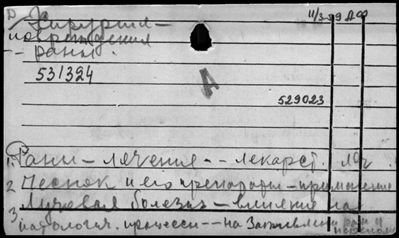 Хирургия –
повреждения
-- раны.
531324
A
529023
1. Раны – лечение -- лекарст.
2 Чеснок и его препараты – применение
3. Лучевая болезнь – влияние на
патологич. процессы -- на заживление ран и